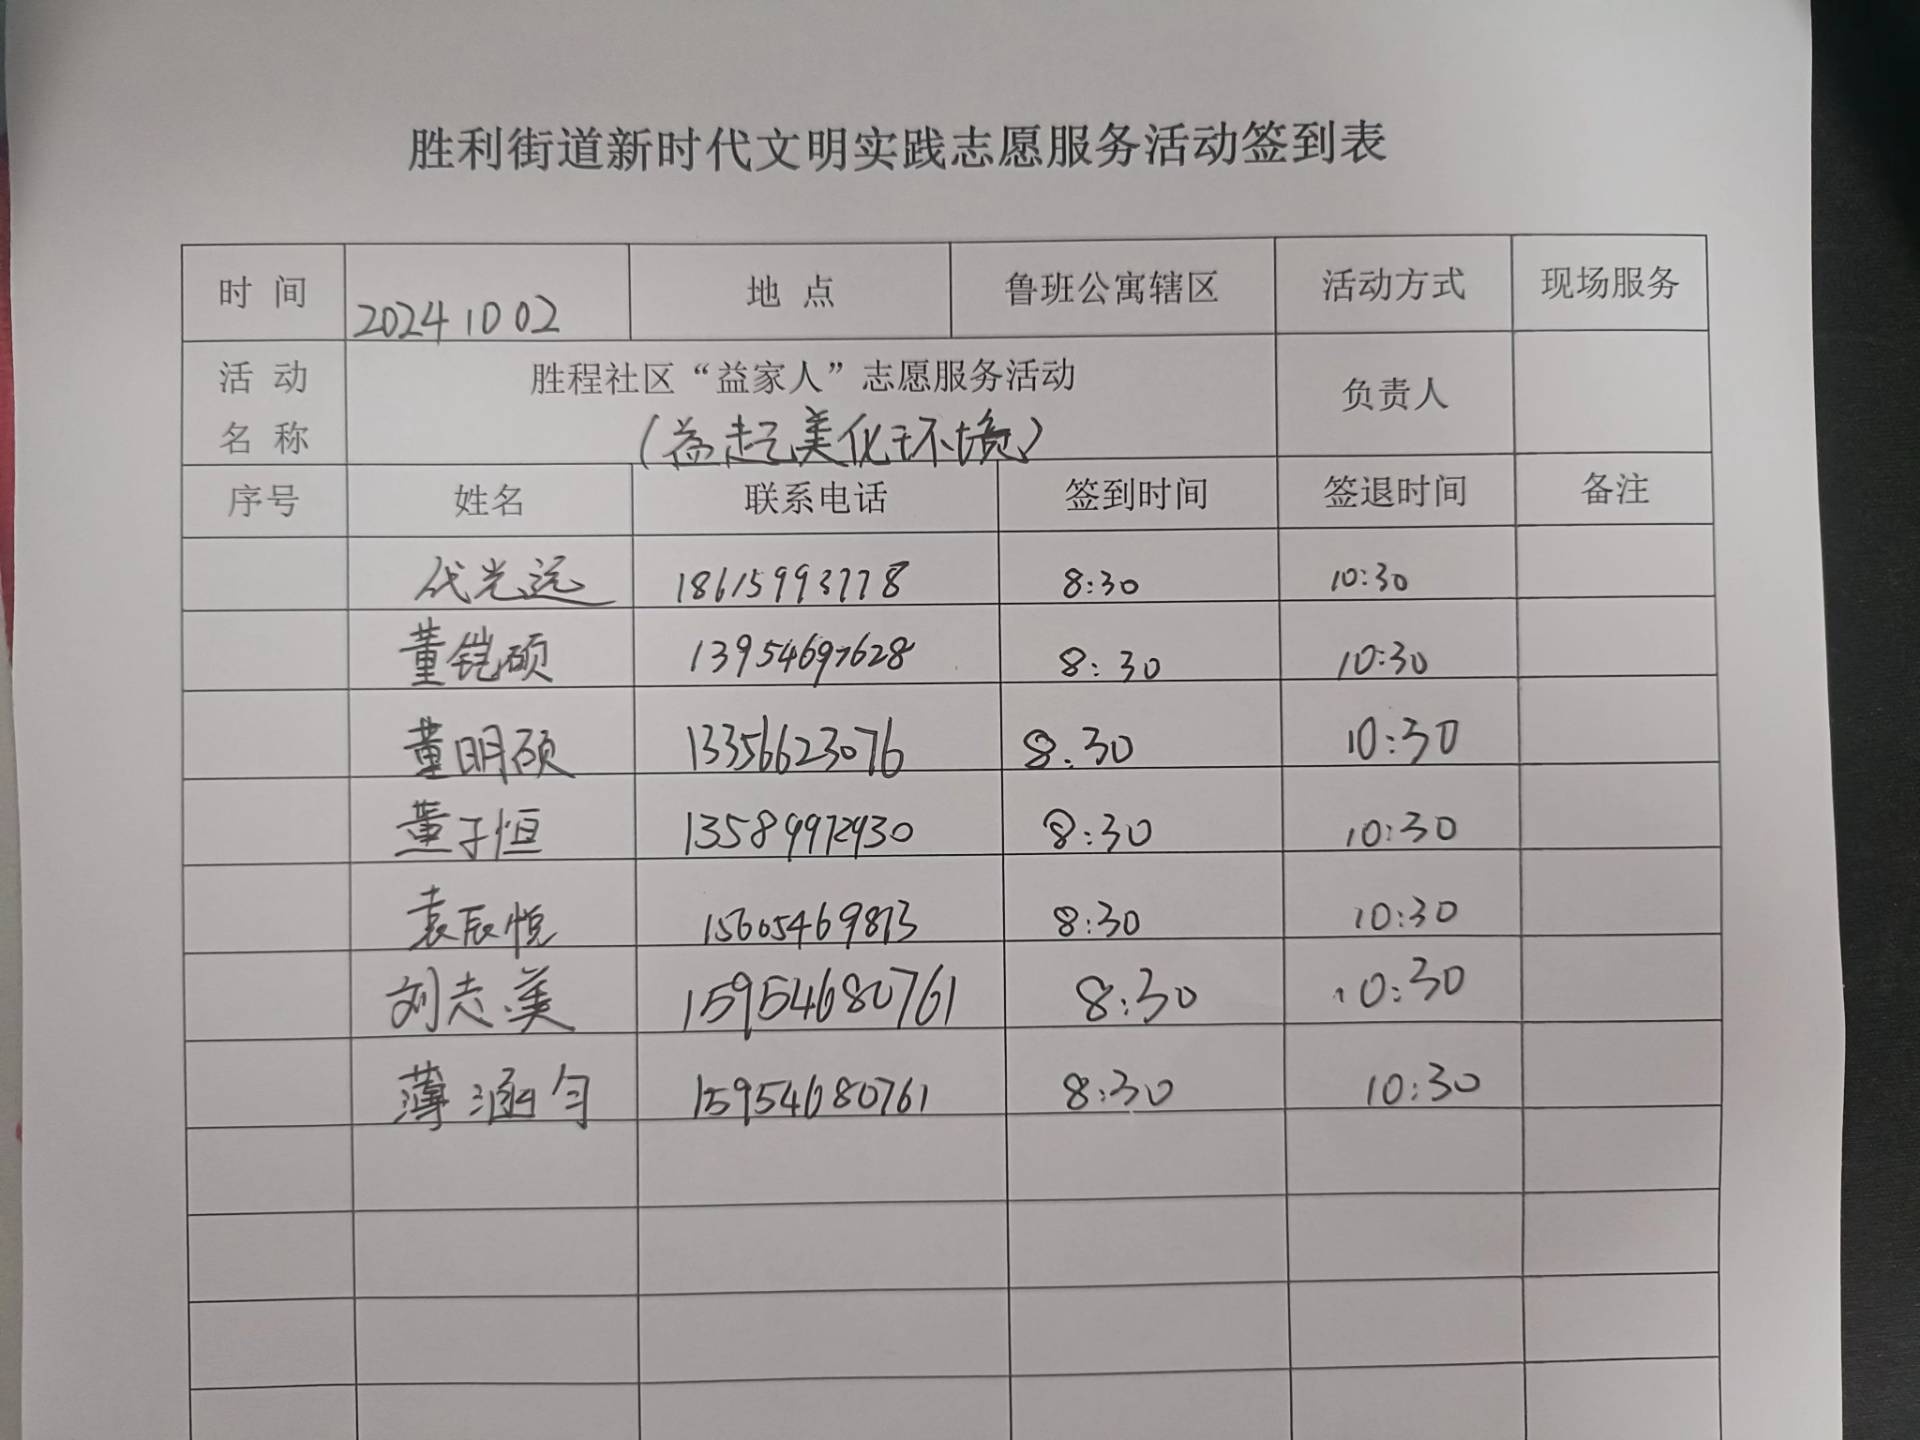 胜利街道新时代文明实践志愿服务活动签到表
时 间 20241002 地 点 鲁班公寓辖区 活动方式 现场服务
活 动 名 称 胜程社区“益家人”志愿服务活动 负责人
（益起美化环境）
序号 姓名 联系电话 签到时间 签退时间 备注
代光远 18615993778 8:30 10:30
董铠硕 13954697628 8:30 10:30
董明硕 13356623076 8.30 10:30
董子恒 13589972930 8:30 10:30
袁辰悦 15605469873 8:30 10:30
刘志美 15954680761 8:30 10:30
薄涵匀 15954680761 8:30 10:30